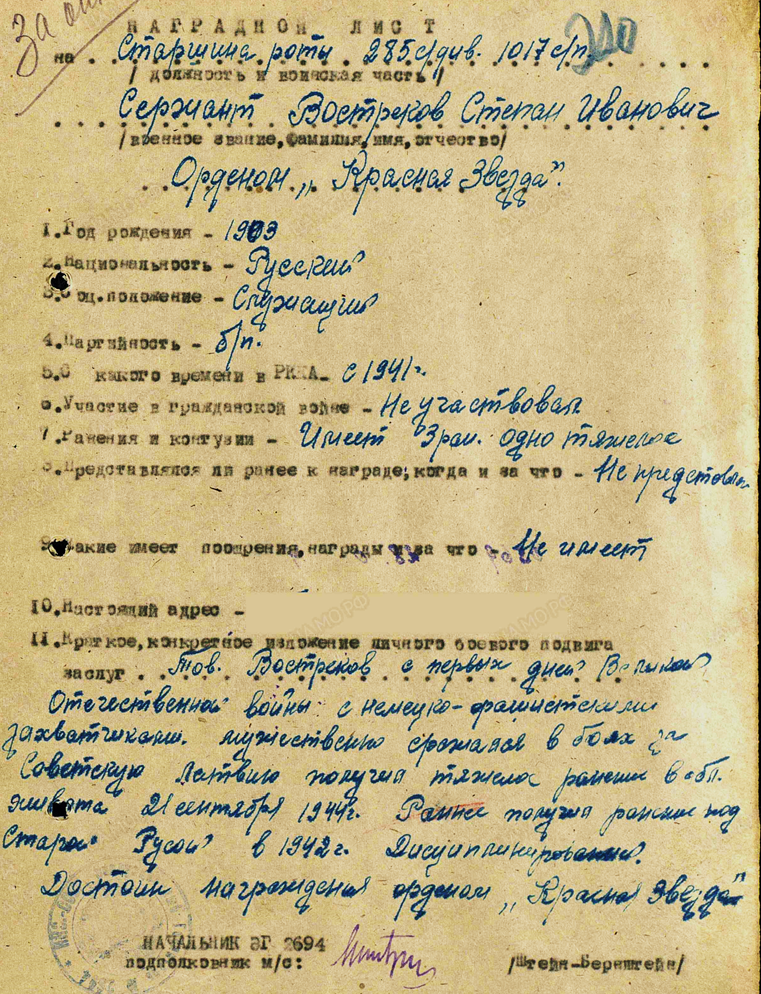 За от
НАГРАДНОЙ ЛИСТ
210
на . Старшина роты 285 с/див. 1017 с/п.
/ должность и воинская часть /
Сержант Востреков Степан Иванович
/военное звание, фамилия, имя, отчество/
Орденом „Красная Звезда".
1. Год рождения - 1903
2. Национальность - Русский
3. Соц. положение - Служащий
4. Партийность - б/п.
5. С какого времени в РККА - с 1941 г.
6. Участие в гражданской войне - Не участвовал
7. Ранения и контузии - Имеет 3 ран. одно тяжелое
8. Представлялся ли ранее к награде, когда и за что - Не представл.
9. Какие имеет поощрения, награды и за что - Не имеет
10. Настоящий адрес -
11. Краткое, конкретное изложение личного боевого подвига
заслуг . . Тов. Востреков с первых дней Великой
Отечественной войны с немецко-фашистскими
захватчиками. мужественно сражался в боях за
Советскую Латвию получил тяжелое ранение в обл.
живота 21 сентября 1944 г. Ранее получил ранение под
Старой Русой в 1942 г. Дисциплинирован.
Достоин награждения орденом „Красная Звезда"
НАЧАЛЬНИК ЭГ 2694
подполковник м/с: /Штейн-Бернштейн/